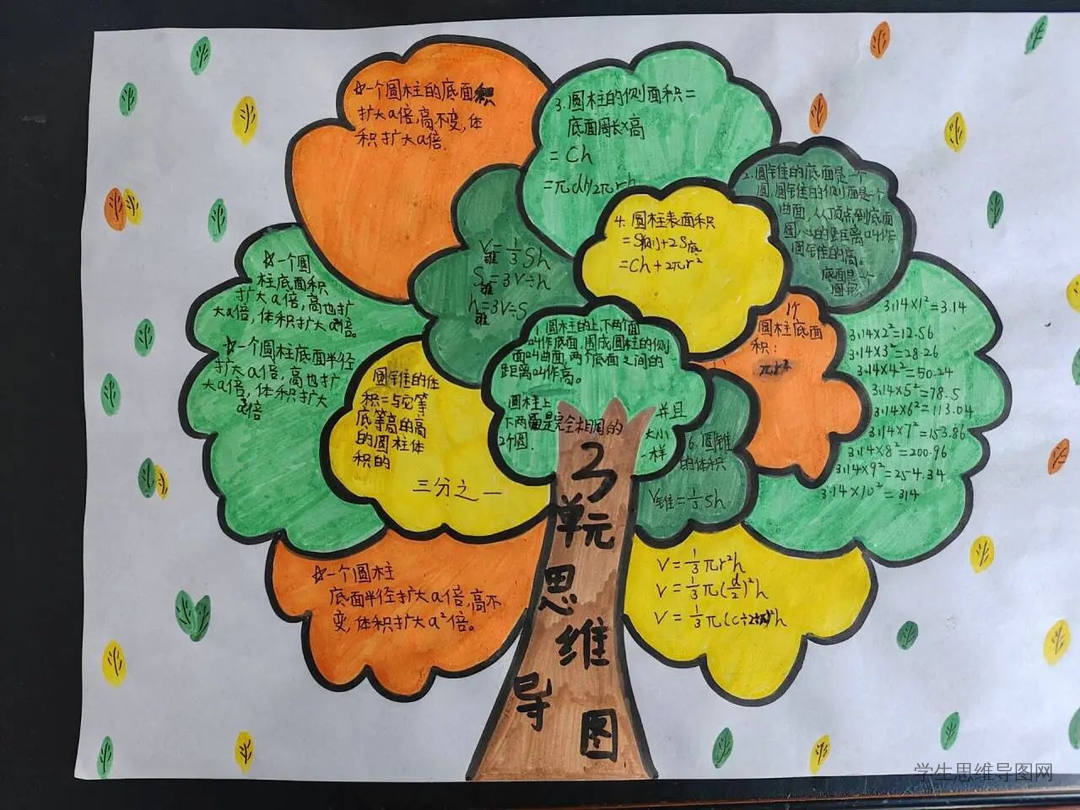 ☆一个圆柱的底面积
扩大a倍,高不变,体
积扩大a倍.
3.圆柱的侧面积=
底面周长×高
=Ch
=πdh/2πrh
2.圆锥的底面是一个
圆,圆锥的侧面是一个
曲面,从顶点到底面
圆心的距离叫作
圆锥的高。
底面是一个
圆形
4.圆柱表面积
=S侧+2S底
=Ch+2πr²
V锥=⅓Sh
S锥=3V÷h
h锥=3V÷S
☆一个圆
柱底面积
扩大a倍,高也扩
大a倍,体积扩大a²倍
☆一个圆柱底面半径
扩大a倍,高也扩
大a倍,体积扩大
a³倍
1.圆柱的上,下两个面
叫作底面,围成圆柱的侧
面叫曲面,两个底面之间的
距离叫作高。
圆柱上
下两面是完全相同的
2个圆.
并且
大小
一样
个
圆柱底面
积:
πr²
3.14×1²=3.14
3.14×2²=12.56
3.14×3²=28.26
3.14×4²=50.24
3.14×5²=78.5
3.14×6²=113.04
3.14×7²=153.86
3.14×8²=200.96
3.14×9²=254.34
3.14×10²=314
圆锥的体
积=与它等
底等高的高
的圆柱体
积的
三分之一
6.圆锥
的体积
V锥=⅓Sh
☆一个圆柱
底面半径扩大a倍,高不
变,体积扩大a²倍。
V=⅓πr²h
V=⅓π(d/2)²h
3
单元
思
维
导
图
学生思维导图网